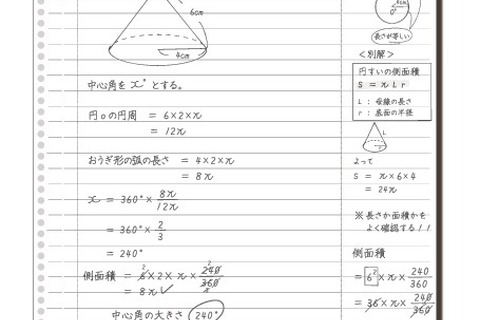 6cm
4cm
中心角を x° とする。
円oの円周 = 6×2×π
= 12π
おうぎ形の弧の長さ = 4×2×π
= 8π
x = 360°× 8π/12π
= 360°× 2/3
= 240°
側面積 = 6×2×π×240/360
= 8π
中心角の大きさ 240°
長さが等しい
<別解>
円すいの側面積
S = πLr
L : 母線の長さ
r : 底面の半径
L
r
よって
S = π×6×4
= 24π
※長さか面積かを
よく確認する!!
側面積
= 6²×π×240/360
= 36×π×240/360